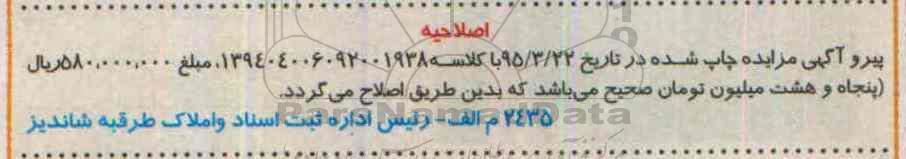 اصلاحیه
پیرو آگهی مزایده چاپ شده در تاریخ ۹۵/۳/۲۲ با کلاسه ۱۳۹۴۰۴۰۰۶۰۹۲۰۰۱۹۳۸، مبلغ ۵۸۰،۰۰۰،۰۰۰ریال
(پنجاه و هشت میلیون تومان صحیح می‌باشد که بدین طریق اصلاح می‌گردد.
۲۴۳۵ م الف- رئیس اداره ثبت اسناد واملاک طرقبه شاندیز